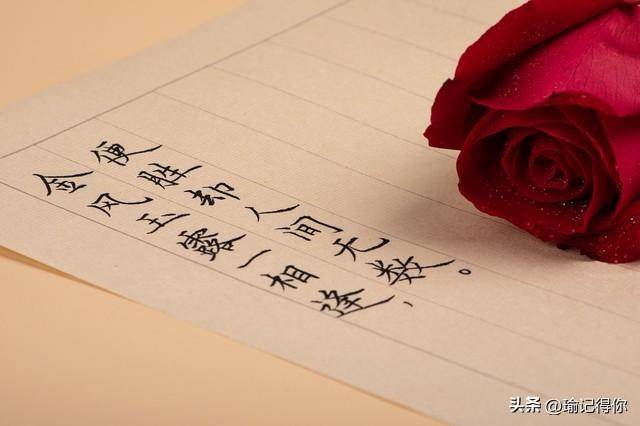 金风玉露一相逢，
便胜却人间无数。
头条 @瑜记得你